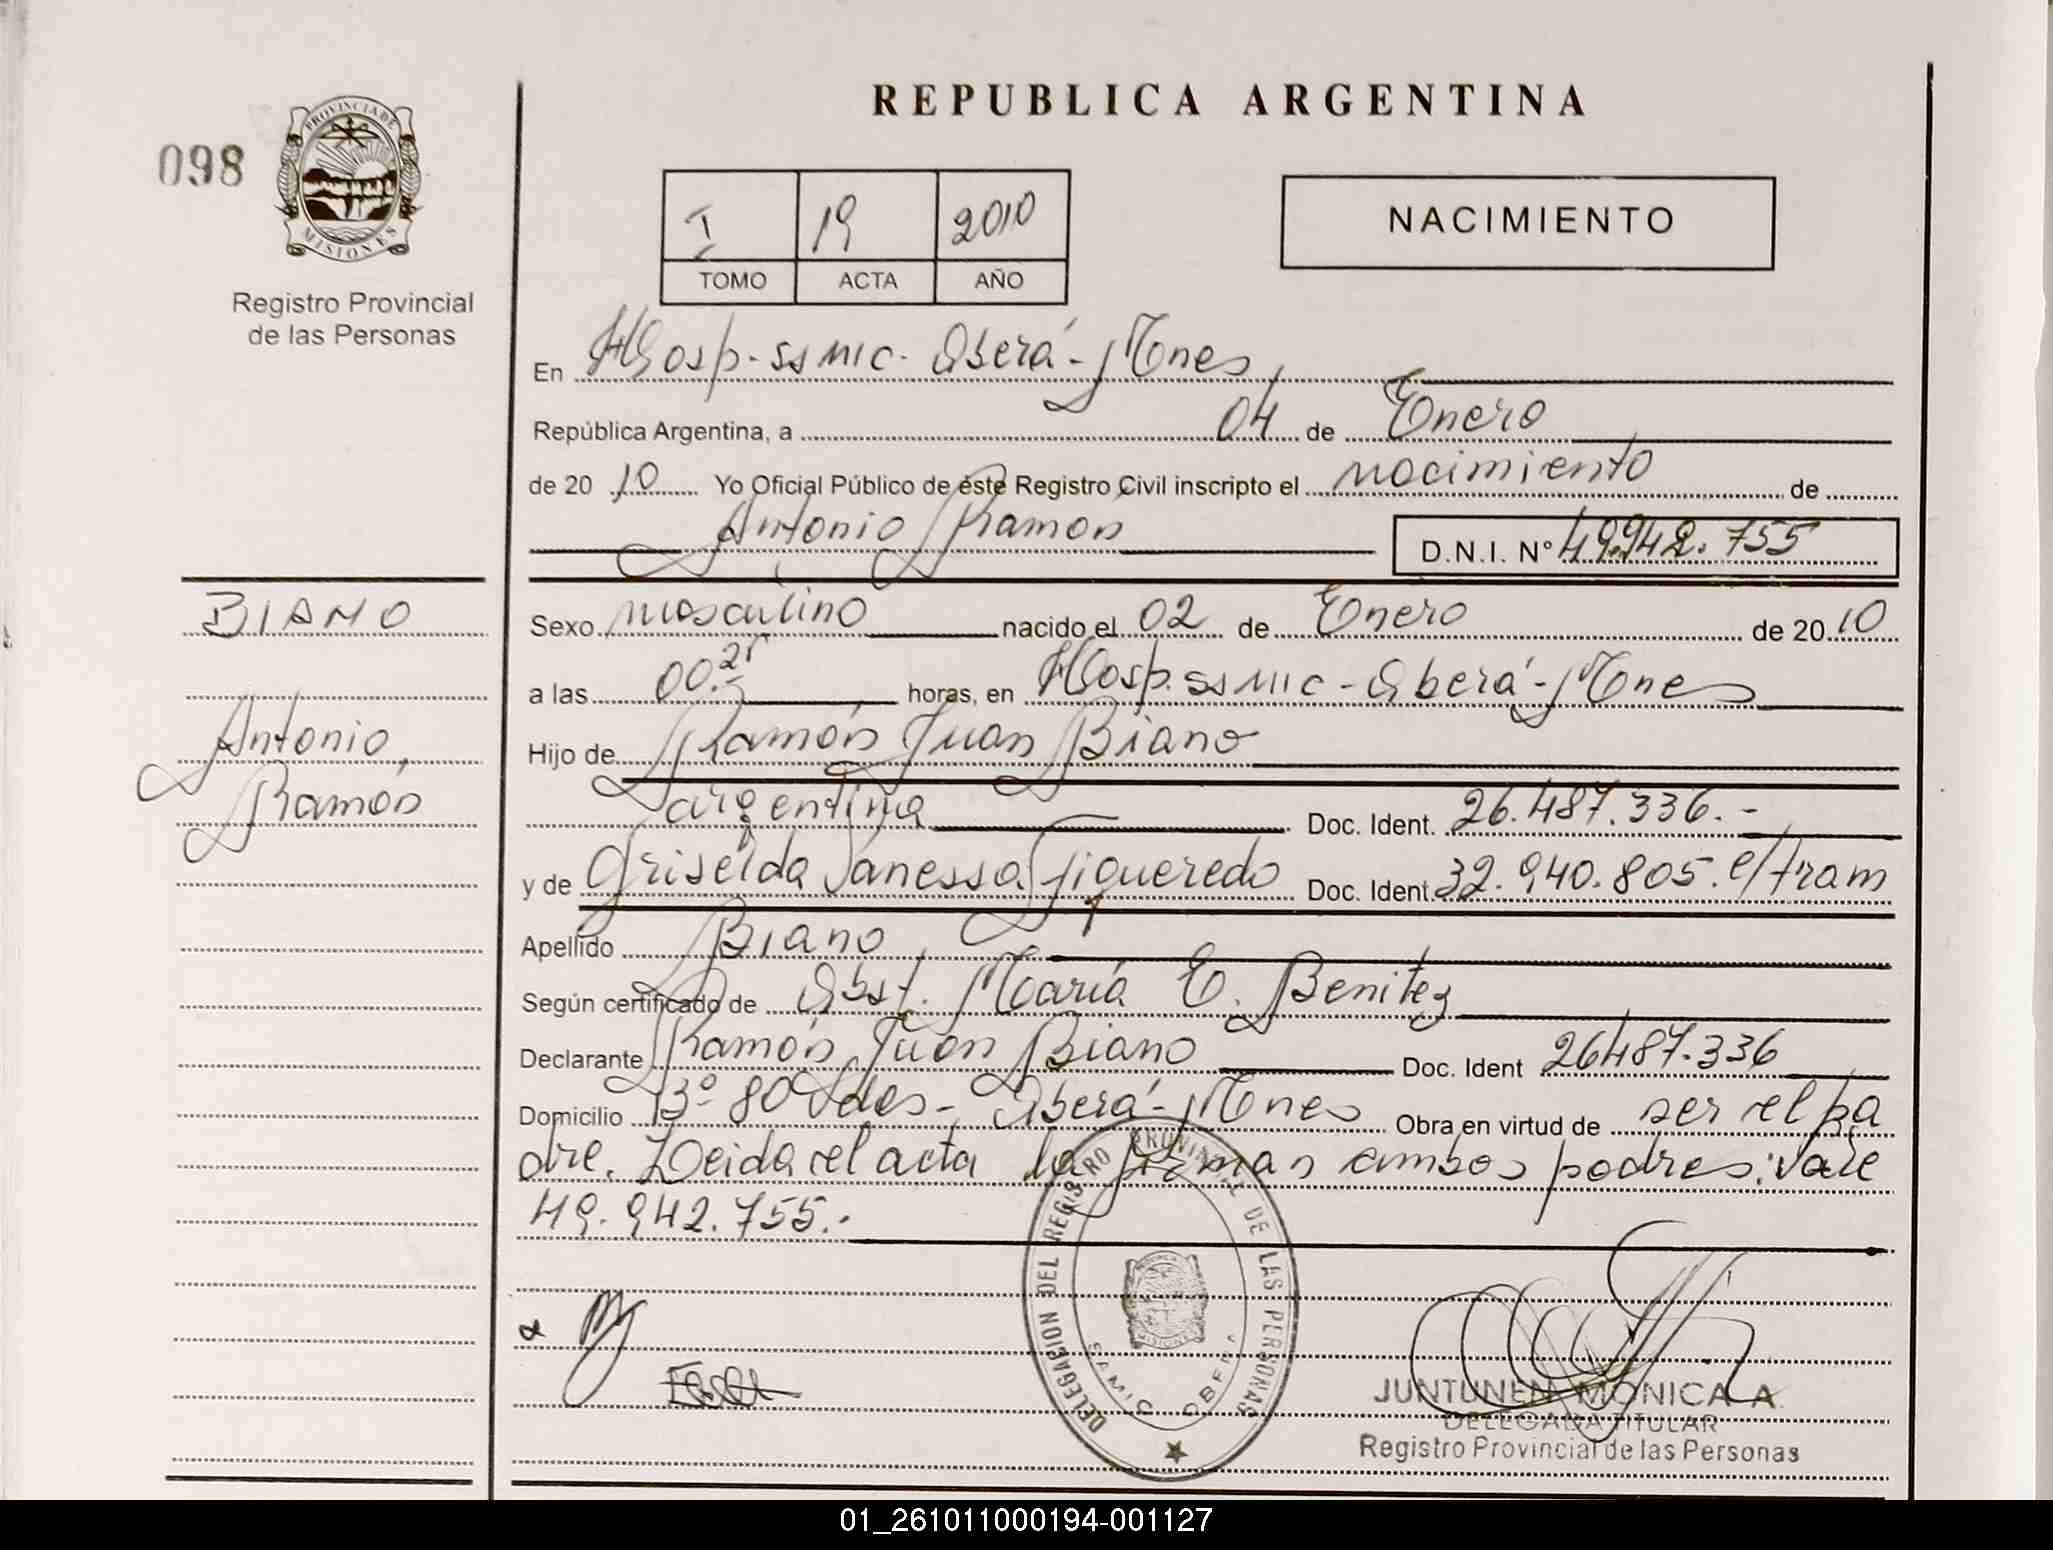 REPUBLICA ARGENTINA
098
PROVINCIA DE
MISIONES
Registro Provincial
de las Personas
I 19 2010
TOMO ACTA AÑO
NACIMIENTO
En Hosp. ss mic. Oberá - Mnes
República Argentina, a 04 de Enero
de 20 10 Yo Oficial Público de éste Registro Civil inscripto el nacimiento de
Antonio Ramón
D.N.I. Nº 49.942.755
BIANO
Antonio
Ramón
Sexo masculino nacido el 02 de Enero de 20 10
a las 00.25 horas, en Hosp. ss mic - Oberá - Mnes
Hijo de Ramón Juan Biano
argentina Doc. Ident. 26.487.336.-
y de Griselda Vanessa Figueredo Doc. Ident. 32.940.805. e/tram
Apellido Biano
Según certificado de Obst. María E. Benitez
Declarante Ramón Juan Biano Doc. Ident 26487.336
Domicilio Bº 80 Vdas - Oberá - Mnes Obra en virtud de ser el pa
dre. Leida el acta la firman ambos padres: Vale
49.942.755.-
DELEGACION DEL REGISTRO PROVINCIAL DE LAS PERSONAS
MISIONES
SAMIC OBERA
JUNTUNEN MONICA A.
DELEGADA TITULAR
Registro Provincial de las Personas
01_261011000194-001127